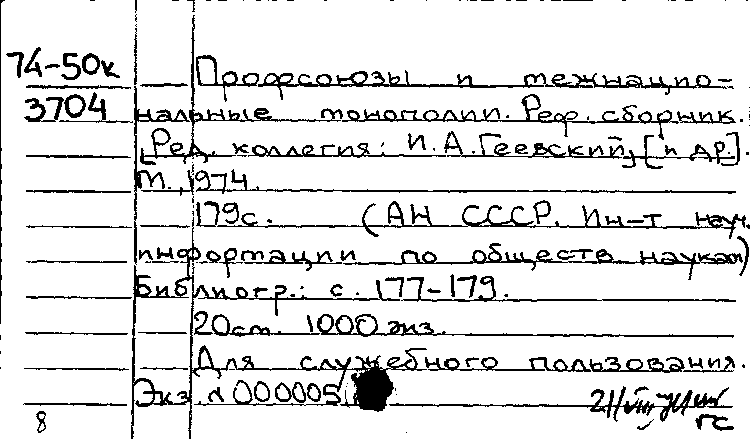 74-50к
3704
Профсоюзы и межнацио-
нальные монополии. Реф. сборник.
[Ред. коллегия: И.А.Геевский] [и др.].
М., 1974.
179с. (АН СССР. Ин-т науч.
информации по обществ наукам)
Библиогр.: с. 177-179.
20см. 1000 экз.
Для служебного пользования.
Экз. № 000005
8
ГС